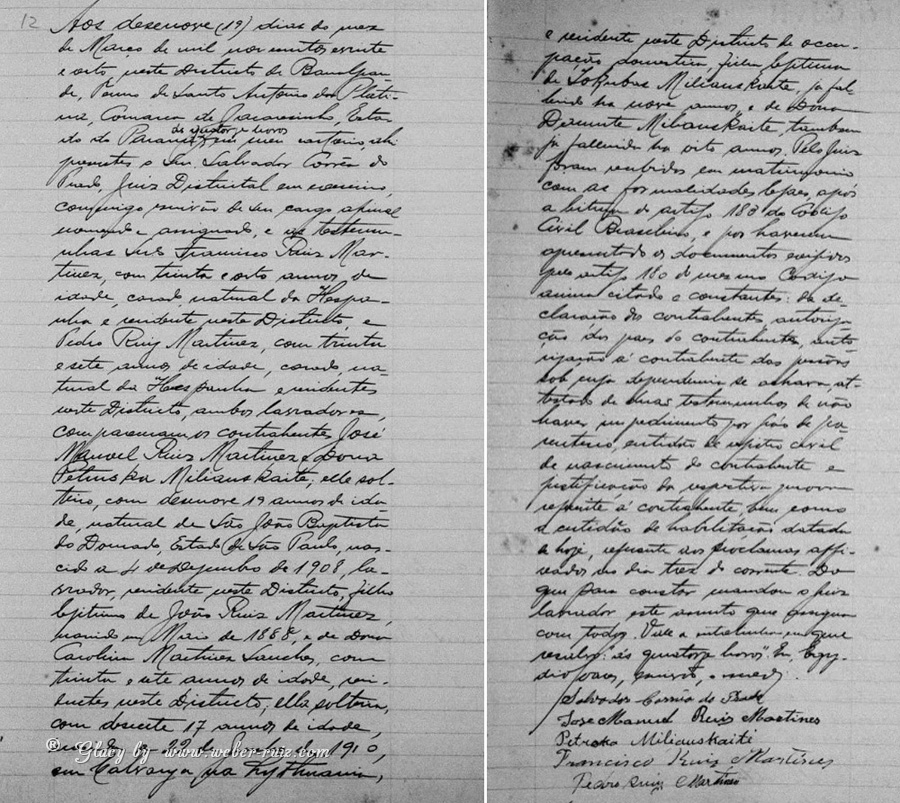 12
Aos desenove (19) dias do mez
de Março de mil novecentos e vinte
e oito, neste Districto de Barra Gran-
de, Termo de Santo Antonio da Plati-
na, Comarca de Jacarésinho, Esta-
do do Paraná, em meu cartorio, ahi
ás quatorze horas
presentes o Snr. Salvador Corrêa do
Prado, Juiz Districtal em exercicio,
commigo escrivão de seu cargo afinal
nomeado e assignado, e as testemu-
nhas Snrs Francisco Ruiz Mar-
tinez, com trinta e oito annos, de
idade, casado, natural da Hespa-
nha e residente neste Districto, e
Pedro Ruiz Martinez, com trinta
e sete, annos, de idade, casado, na-
tural da Hespanha e residentes
neste Districto, ambos lavradores,
compareceram os contrahentes José
Manoel Ruiz Martinez e Dona
Petruska Miliauskaite; elle sol-
teiro, com desenove 19 annos de ida-
de, natural de São João Baptista
do Dourado, Estado de São Paulo, nas-
cido a 4 de Dezembro de 1908, la-
vrador, residente neste Districto, filho
legitimo de João Ruiz Martinez,
nascido em Maio de 1888, e de Dona
Carolina Martinez Sanches, com
trinta e sete annos de idade, resi-
dentes neste Districto; ella solteira,
com desesete 17 annos de idade,
1910,
em Calvarya na Lythuania,
® Glacy by www.weber-ruiz.com
e residente neste Districto de occu-
pação domestica, filha legitima
de Jokubas Miliauskaite, ja fal-
lecido ha nove annos, e de Dona
Miliauskaite, tambem
ja fallecida ha oito annos. Pelo Juiz
foram recebidos em matrimonio
com as formalidades legaes, após
a leitura do artigo 183 do Codigo
Civil Brasileiro, e por haverem
apresentado os documentos exigidos
pelo artigo 180 do mesmo Codigo
acima citado e constantes: da de-
claração dos contrahentes, autorisa-
ção dos paes do contrahente, auto-
risação á contrahente das pessoas
sob cuja dependencia se achava, at-
testado de duas testemunhas de não
haver impedimento por gráo de pa-
rentesco, certidão de registro civil
de nascimento do contrahente e
justificação da respectiva
referente á contrahente, bem como
a certidão de habilitação datada
de hoje, referente aos proclamas affi-
xados no dia tres do corrente. Do
que para constar mandou o juiz
lavrar este assento que assigna
com todos. Vale a entrelinha em que
resalvo: "ás quatorze horas". Eu, Egy-
dio escrivão, o escrevi.
Salvador Corrêa do Prado
Jose Manuel Ruiz Martines
Petroka Miliauskaité
Francisco Ruiz Martines
Pedro Ruiz Martines